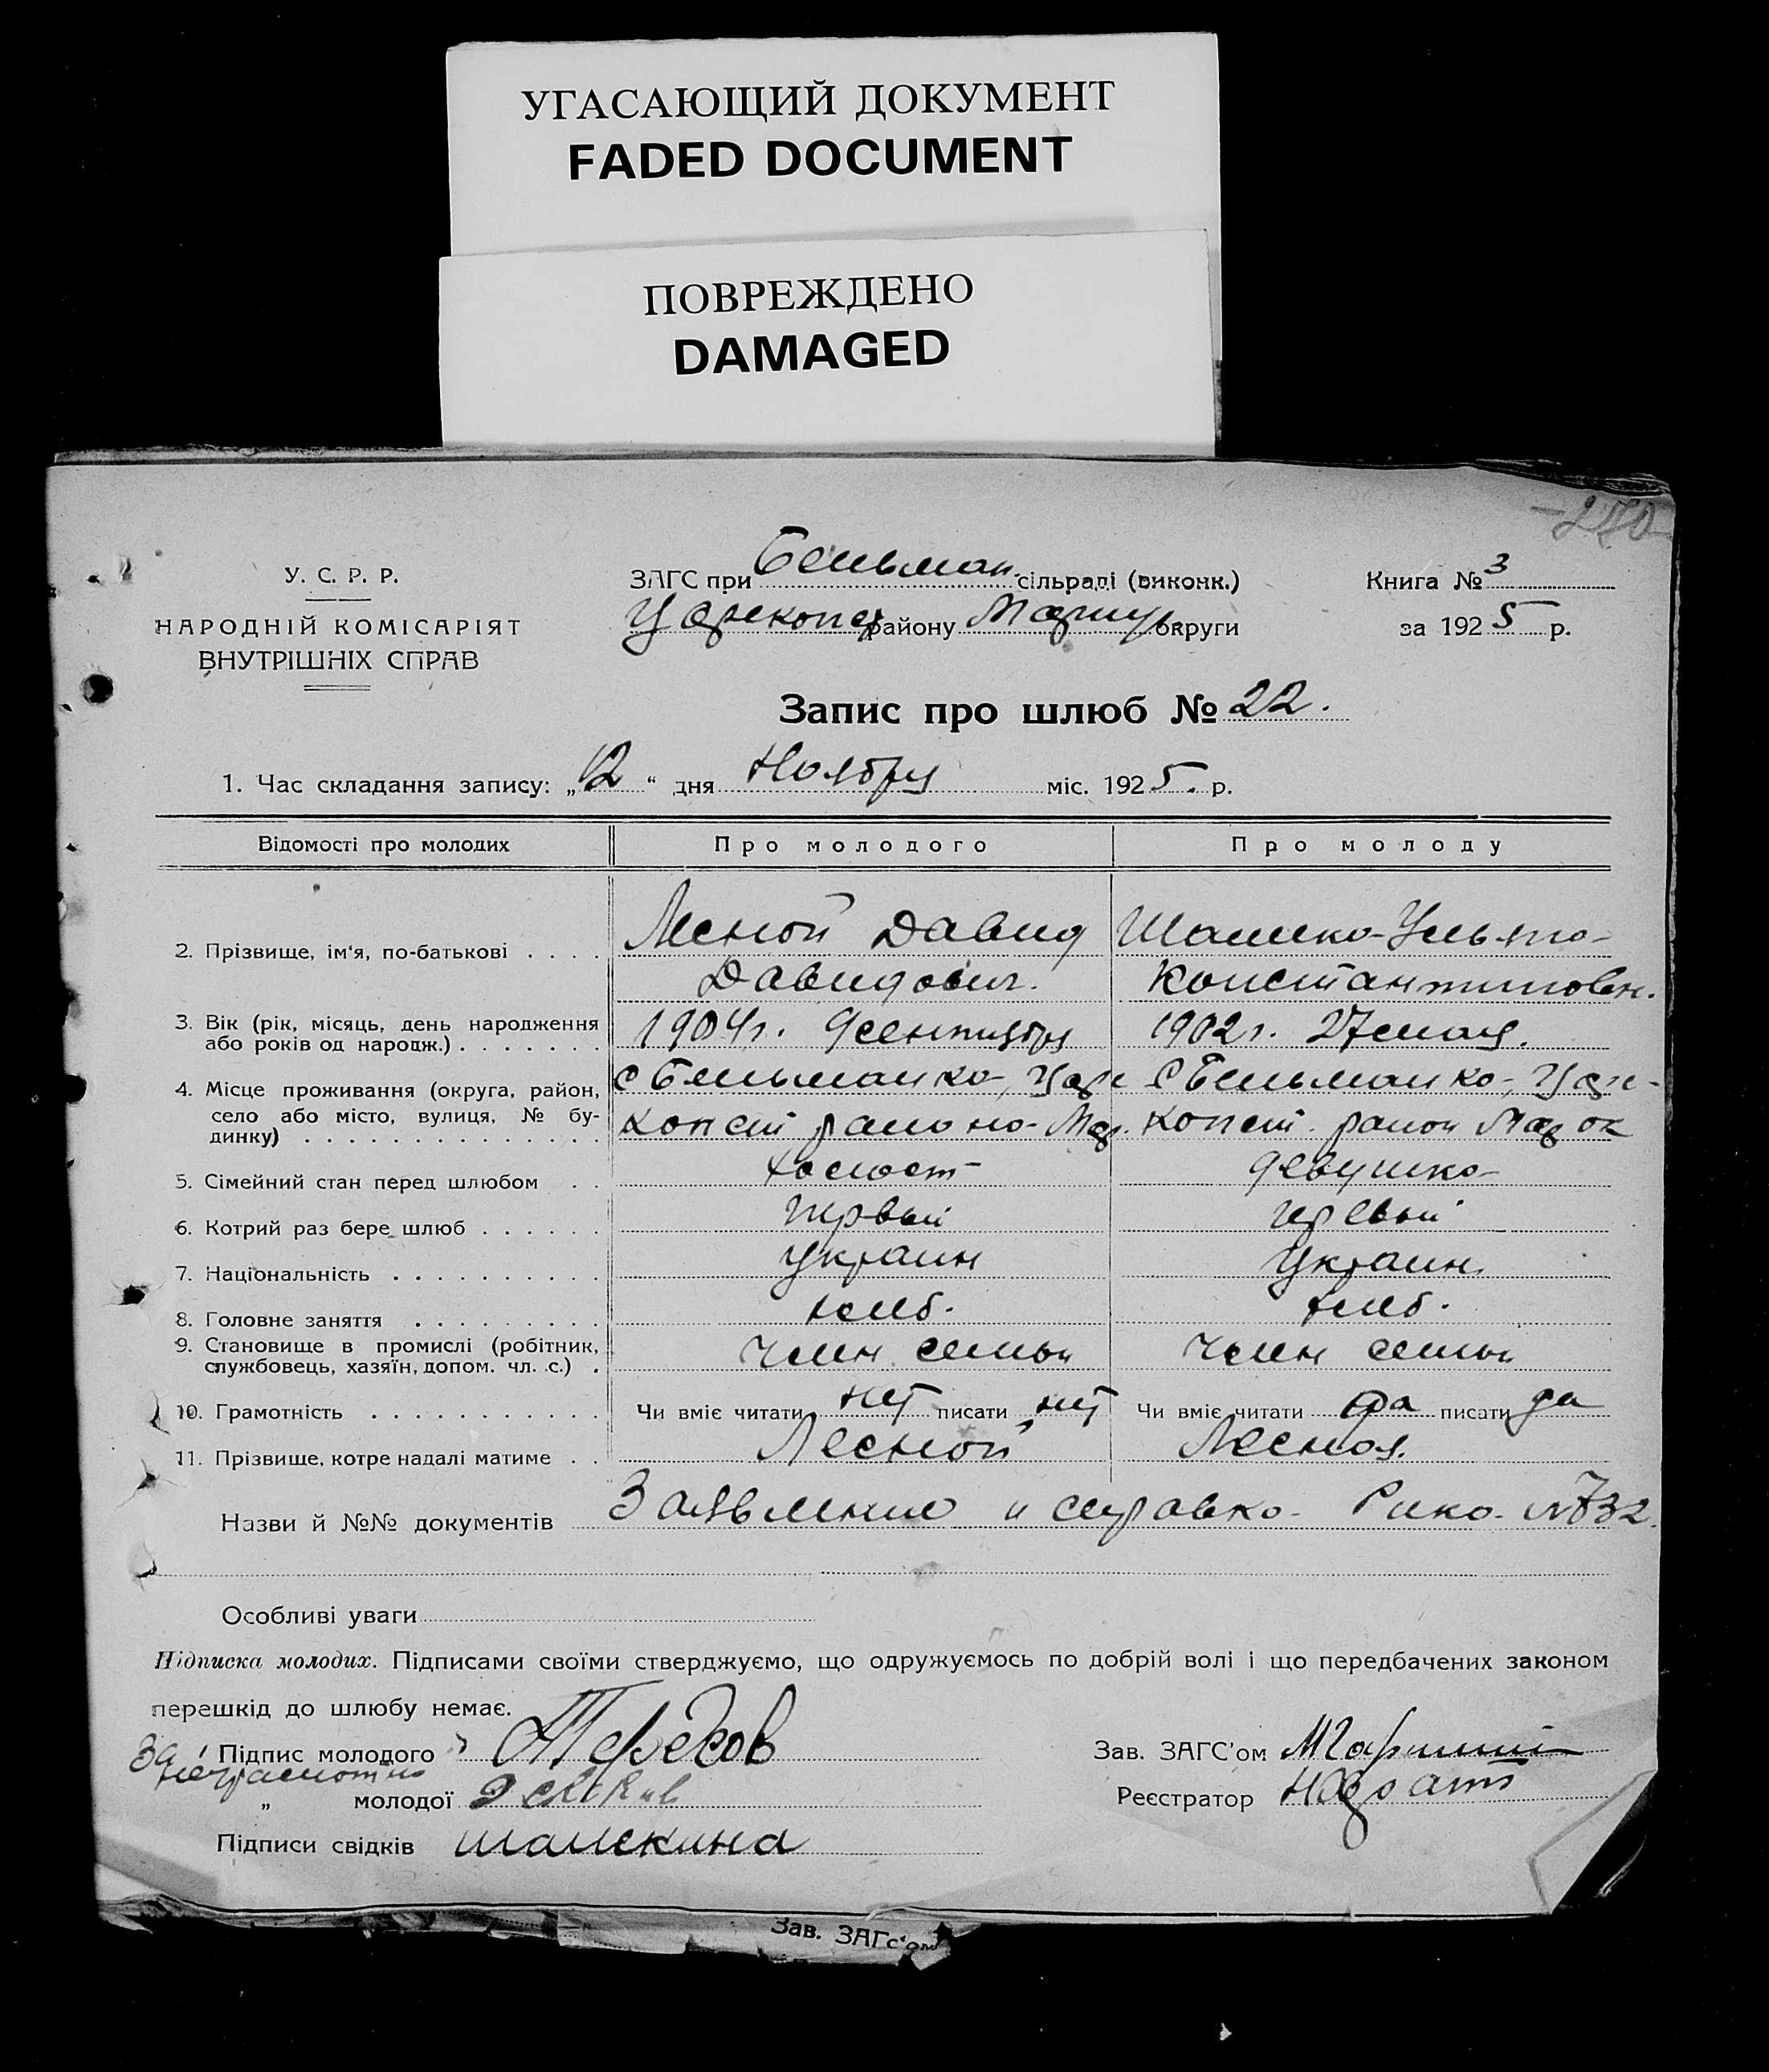 УГАСАЮЩИЙ ДОКУМЕНТ
FADED DOCUMENT
ПОВРЕЖДЕНО
DAMAGED
У. С. Р. Р.
НАРОДНІЙ КОМІСАРІЯТ
ВНУТРІШНІХ СПРАВ
ЗАГС при Бельман. сільраді (виконк.)
Царекон району Мариуп. округи
Книга № 3
за 1925 р.
Запис про шлюб № 22.
1. Час складання запису: „12“ дня Ноября міс. 1925. р.
Відомості про молодих Про молодого Про молоду
2. Прізвище, ім'я, по-батькові . . . . Лесной Давид Шамко Ульяна
Давидович. Константиновн.
3. Вік (рік, місяць, день народження 1904г. 9 сентября 1902г. 27 мая.
або років од народж.) . . . . . . .
4. Місце проживання (округа, район, с Бельманка, Царе с Бельманка, Царе-
село або місто, вулиця, № бу- конст района Мар. конст. район Мар ок
динку) . . . . . . . . . . . . . .
5. Сімейний стан перед шлюбом . . холост девушка
6. Котрий раз бере шлюб . . . . . . первый первый
7. Національність . . . . . . . . . . украин украин.
8. Головне заняття . . . . . . . . . хлеб. хлеб.
9. Становище в промислі (робітник, член семьи член семьи
службовець, хазяїн, допом. чл. с.) .
10. Грамотність . . . . . . . . . . . Чи вміє читати нет писати нет Чи вміє читати да писати да
11. Прізвище, котре надалі матиме . . Лесной Лесная.
Назви й №№ документів Заявление и справка Рика №732.
Особливі уваги
Підписка молодих. Підписами своїми стверджуємо, що одружуємось по добрій волі і що передбачених законом
перешкід до шлюбу немає.
За Підпис молодого
неграмотн
„ молодої
Підписи свідків
Зав. ЗАГС'ом
Реєстратор
Зав. ЗАГс'ом